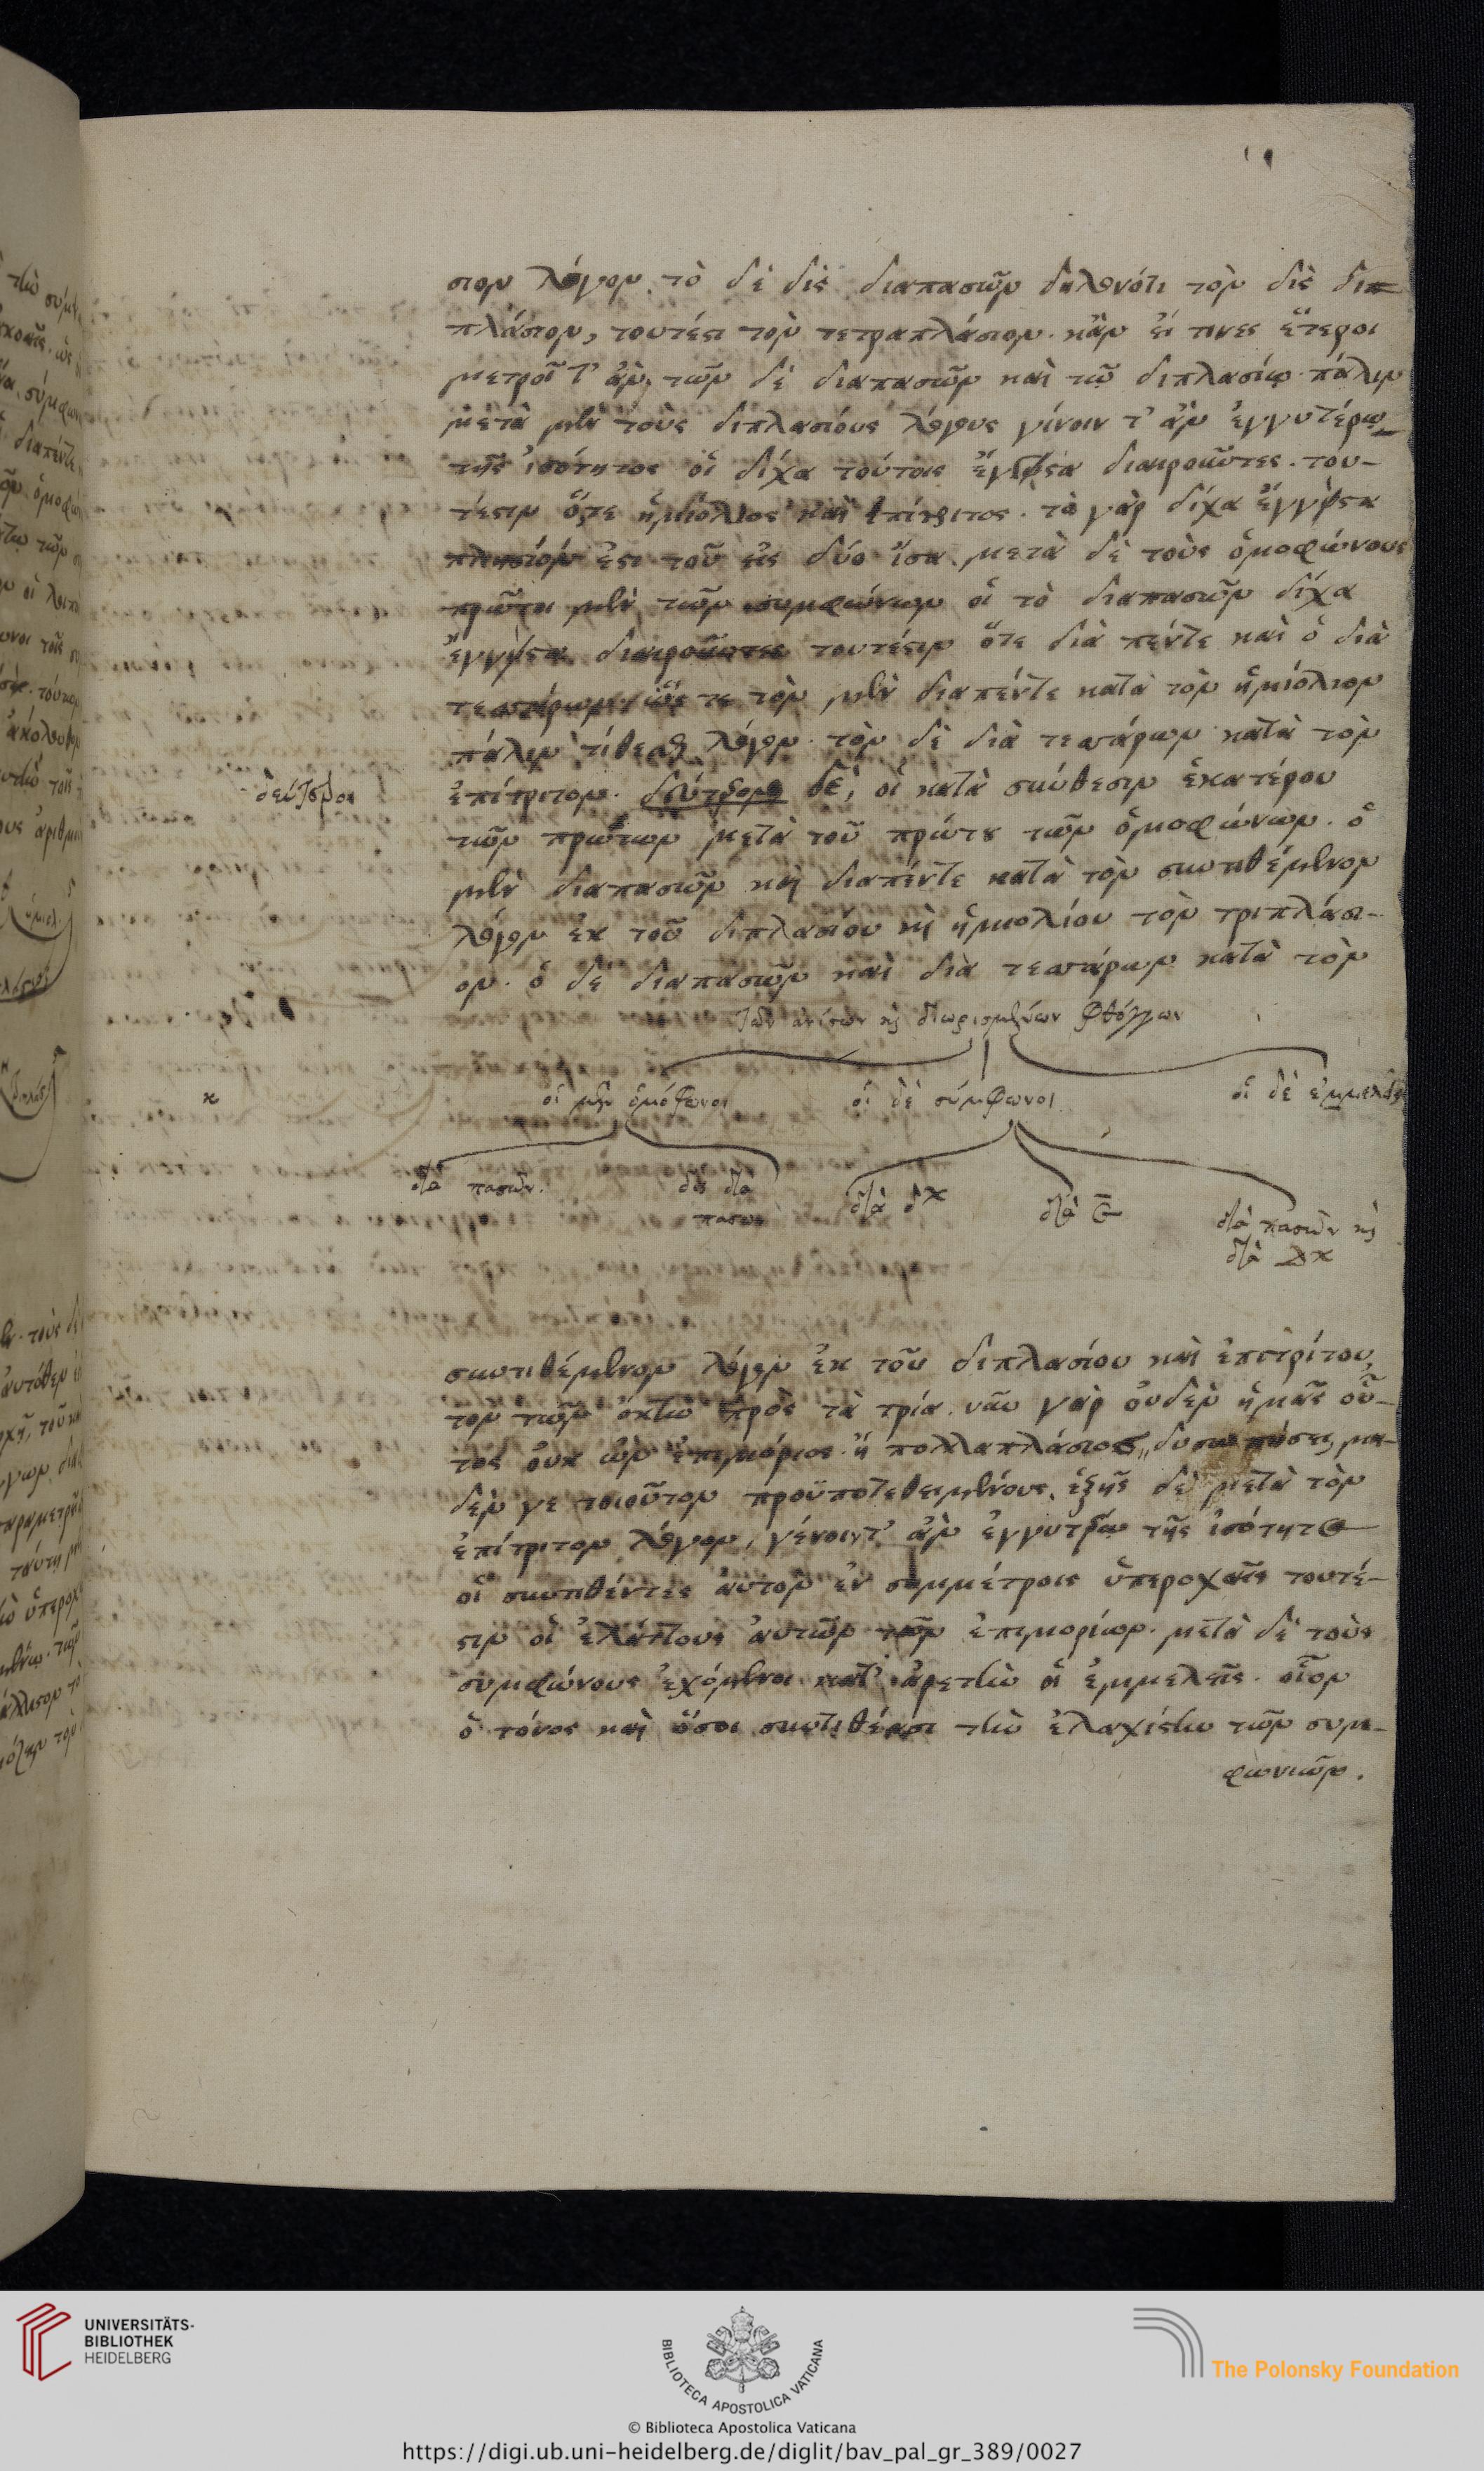 σιον λόγον. τὸ δὲ δὶς διαπασῶν δηλονότι τὸν δὶς δι
πλάσιον, τουτέστι τὸν τετραπλάσιον. κἂν εἴ τινες ἕτεροι
μετροῖντ' ἂν, τῶν δὲ διαπασῶν καὶ τῷ διπλασίῳ. πάλιν
μετὰ μὲν τοὺς διπλασίους λόγους γίνοιντ' ἂν ἐγγυτέρω
τῆς ἰσότητος οἱ δίχα τούτοις ἔγγιστα διαιροῦντες. του-
τέστιν ὅ,τε ἡμιόλιος καὶ ἐπίτριτος. τὸ γὰρ δίχα ἔγγιστα
πλησίον ἐστι τοῦ εἰς δύο ἴσα. μετὰ δὲ τοὺς ὁμοφώνους
πρῶτοι μὲν τῶν συμφώνων οἱ τὸ διαπασῶν δίχα
ἔγγιστα διαιροῦντες τουτέστιν ὅτε διὰ πέντε καὶ ὁ διὰ
τεσσάρων, ὥστε τὸν μὲν διαπέντε κατὰ τὸν ἡμιόλιον
πάλιν τίθεσθαι λόγον. τὸν δὲ διὰ τεσσάρων κατὰ τὸν
δεύτεροι
ἐπίτριτον. δὲ, οἱ κατὰ σύνθεσιν ἑκατέρου
τῶν πρώτων μετὰ τοῦ πρώτου τῶν ὁμοφώνων. ὁ
μὲν διαπασῶν καὶ διαπέντε κατὰ τὸν συντιθέμενον
λόγον ἐκ τοῦ διπλασίου καὶ ἡμιολίου τὸν τριπλάσι-
ον. ὁ δὲ διαπασῶν καὶ διὰ τεσσάρων κατὰ τὸν
Τῶν ἀνίσων καὶ διωρισμένων φθόγγων
οἱ μὲν ὁμόφωνοι οἱ δὲ σύμφωνοι οἱ δὲ ἐμμελεῖς
διὰ πασῶν. δὶς διὰ πασῶν διὰ δ διὰ ε διὰ πασῶν καὶ
διὰ
συντιθέμενον λόγον ἐκ τοῦ διπλασίου καὶ ἐπιτρίτου,
τὸν τῶν ὀκτὼ πρὸς τὰ τρία. νῦν γὰρ οὐδὲν ἡμᾶς οὗ-
τος οὐκ ὢν ἐπιμόριος ἢ πολλαπλάσιος, δυσωπήσει, μη-
δέν γε τοιοῦτον προϋποτεθειμένους. ἑξῆς δὲ μετὰ τὸν
ἐπίτριτον λόγον, γένοιντ' ἂν ἐγγυτέρω τῆς ἰσότητος
οἱ συντιθέντες αὐτὸν ἐν συμμέτροις ὑπεροχαῖς τουτέ-
στιν οἱ ἐλάττους αὐτῶν τῶν ἐπιμορίων. μετὰ δὲ τοὺς
συμφώνους ἐχόμενοι κατ' ἀρετὴν οἱ ἐμμελεῖς. οἷον
ὁ τόνος καὶ ὅσοι συντιθέασι τὴν ἐλαχίστην τῶν συμ-
φωνιῶν.
UNIVERSITÄTS-
BIBLIOTHEK
HEIDELBERG
BIBLIOTECA APOSTOLICA VATICANA
The Polonsky Foundation
© Biblioteca Apostolica Vaticana
https://digi.ub.uni-heidelberg.de/diglit/bav_pal_gr_389/0027